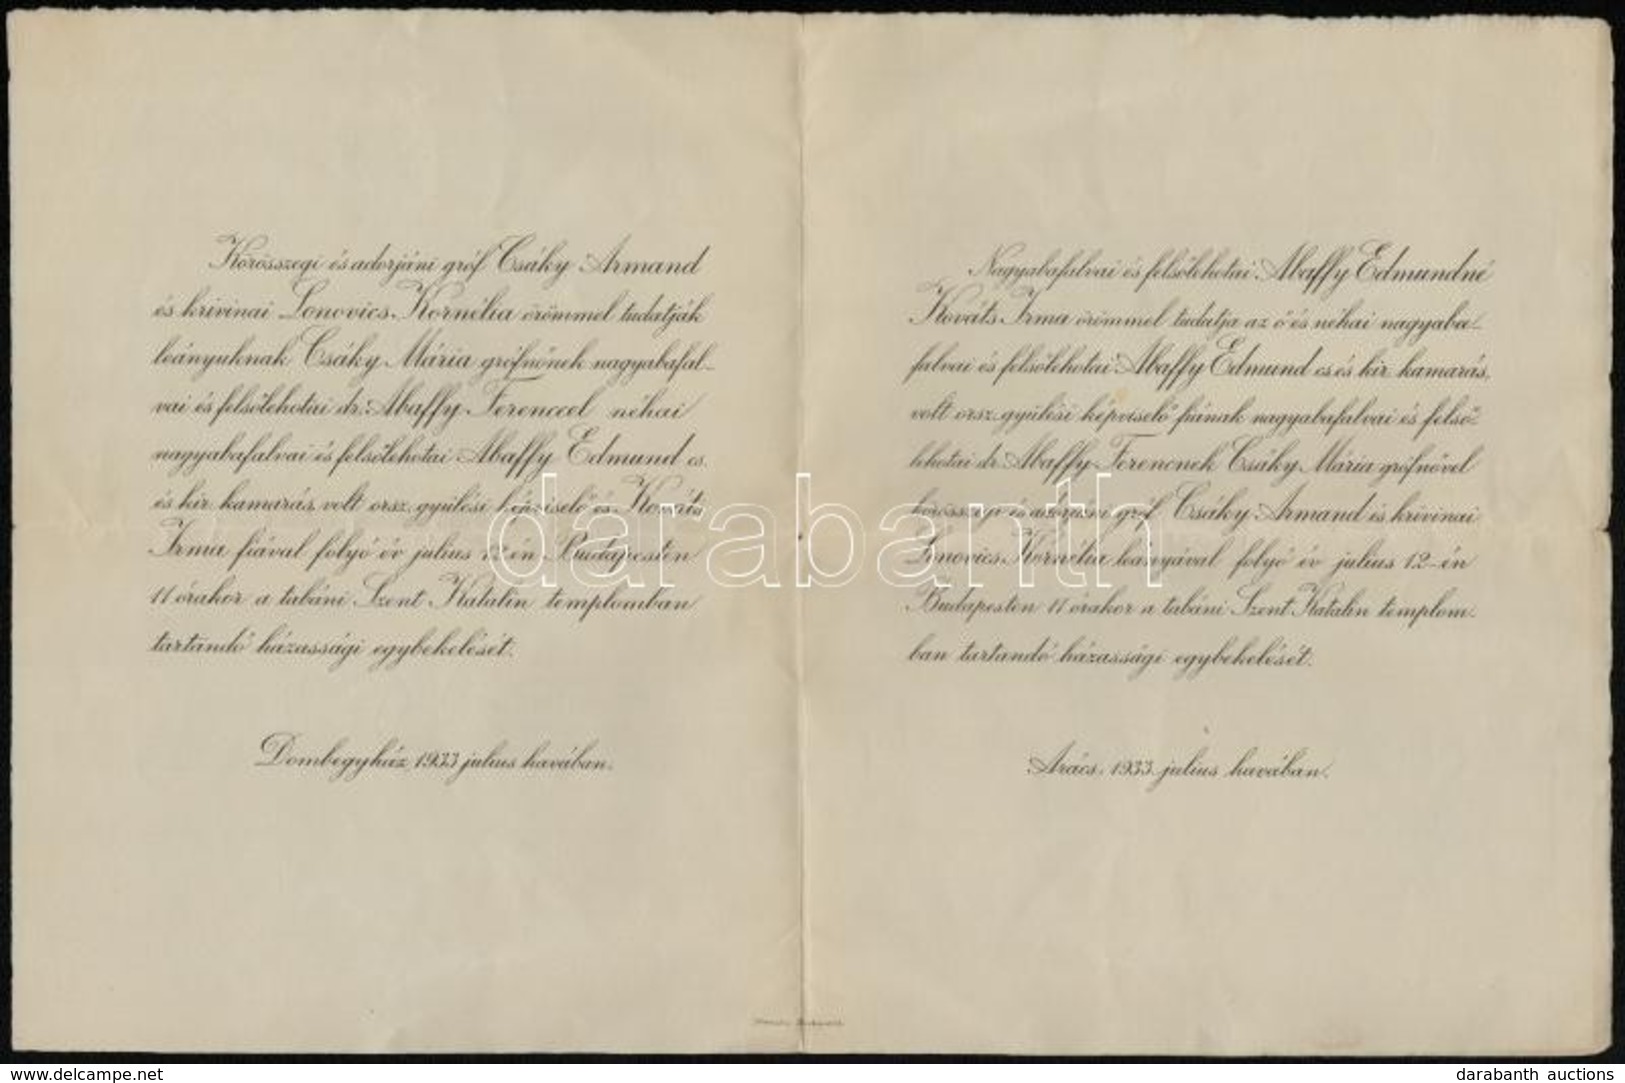 Kőrösszegi és adorjáni gróf Csáky Armand
és krivinai Lonovics Kornélia örömmel tudatják
leányuknak Csáky Mária grófnőnek nagyabafal-
vai és felsőlehotai dr. Abaffy Ferenccel néhai
nagyabafalvai és felsőlehotai Abaffy Edmund cs.
és kir. kamarás, volt orsz. gyülési képviselő és Kováts
Irma fiával folyó év julius 12-én Budapesten
11 órakor a tabáni Szent Katalin templomban
tartandó házassági egybekelését.
Dombegyház, 1933 julius havában.
Nagyabafalvai és felsőlehotai Abaffy Edmundné
Kováts Irma örömmel tudatja az ő és néhai nagyaba-
falvai és felsőlehotai Abaffy Edmund cs és kir. kamarás,
volt orsz. gyülési képviselő fiának nagyabafalvai és felső-
lehotai dr. Abaffy Ferencnek Csáky Mária grófnővel
kőrösszegi és adorjáni gróf Csáky Armand és krivinai
Lonovics Kornélia leányával folyó év július 12-én
Budapesten 11 órakor a tabáni Szent Katalin templom-
ban tartandó házassági egybekelését.
Arács, 1933. julius havában.
darabanth
www.delcampe.net
darabanth auctions